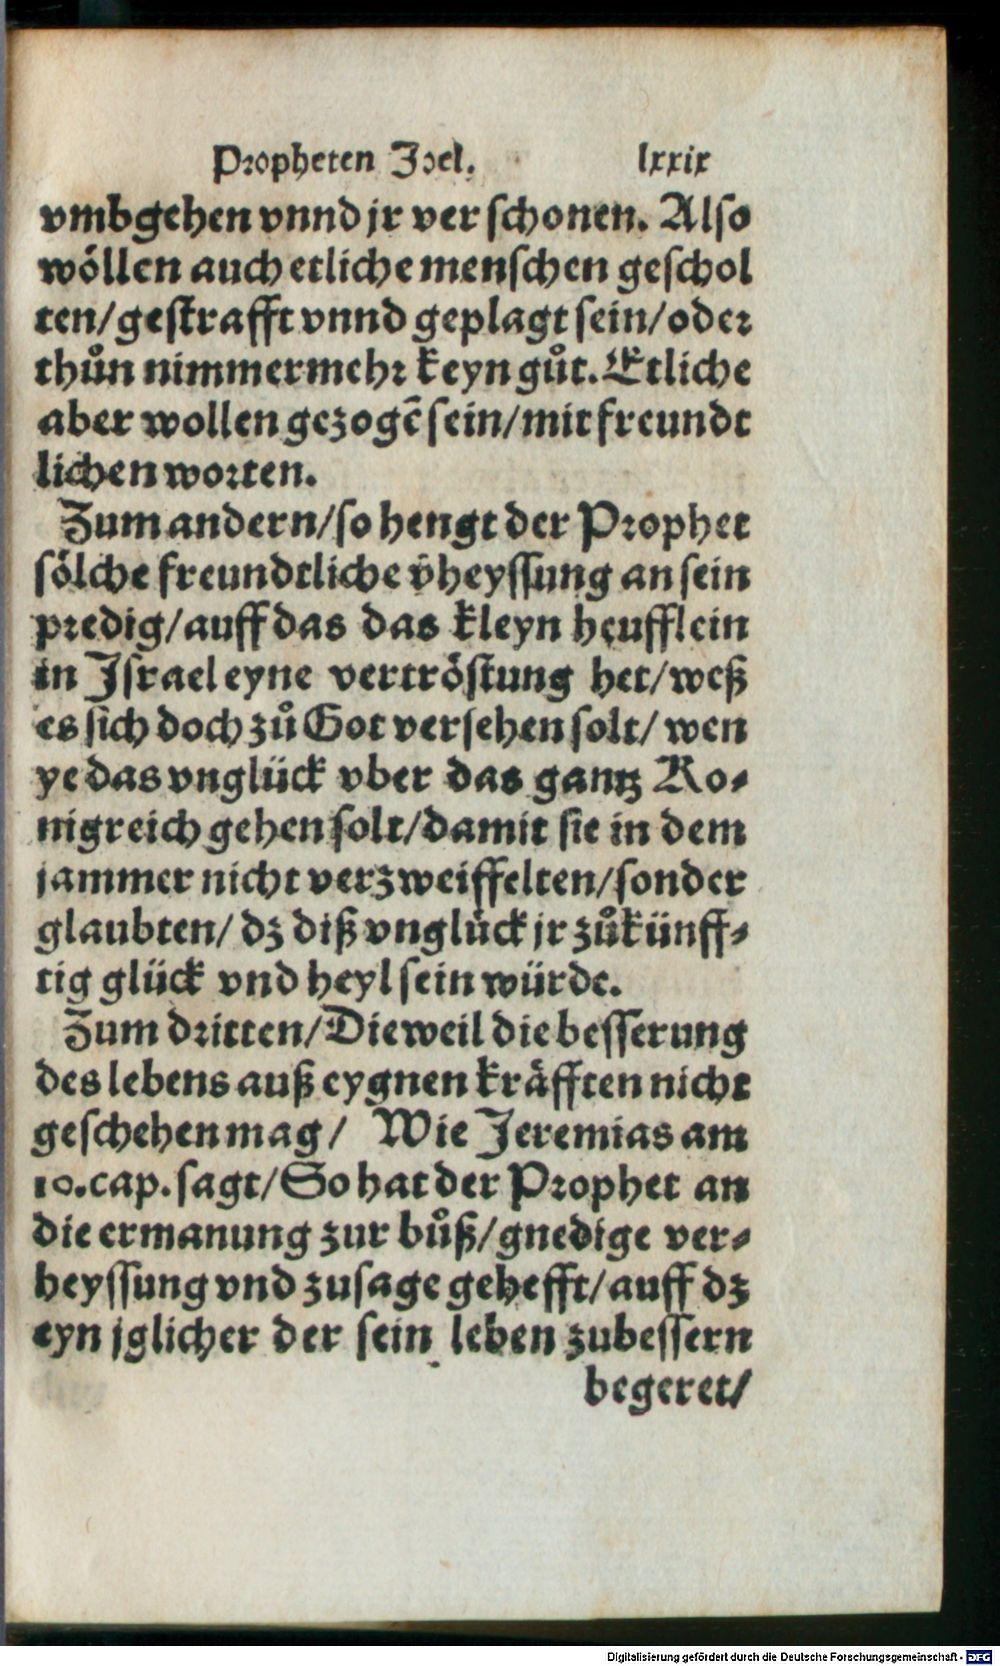 Propheten Joel. lxxix
vmbgehen vnnd jr verschonen. Also
wöllen auch etliche menschen geschol
ten/gestrafft vnnd geplagt sein/oder
thůn nimmermehr keyn gůt. Etliche
aber wollen gezogē sein/mit freundt
lichen worten.
Zum andern/so hengt der Prophet
sölche freundtliche v̄heyssung an sein
predig/auff das das kleyn heufflein
in Jsrael eyne vertröstung het/weß
es sich doch zů Got versehen solt/ wen
ye das vnglück vber das gantz Ko⸗
nigreich gehen solt/damit sie in dem
jammer nicht verzweiffelten/sonder
glaubten/ dz diß vnglück jr zůkünff⸗
tig glück vnd heyl sein würde.
Zum dritten/Dieweil die besserung
des lebens auß eygnen kräfften nicht
geschehen mag/ Wie Jeremias am
10.cap.sagt/So hat der Prophet an
die ermanung zur bůß/gnedige ver⸗
heyssung vnd zusage gehefft/auff dz
eyn jglicher der sein leben zubessern
begeret/
Digitalisierung gefördert durch die Deutsche Forschungsgemeinschaft - DFG